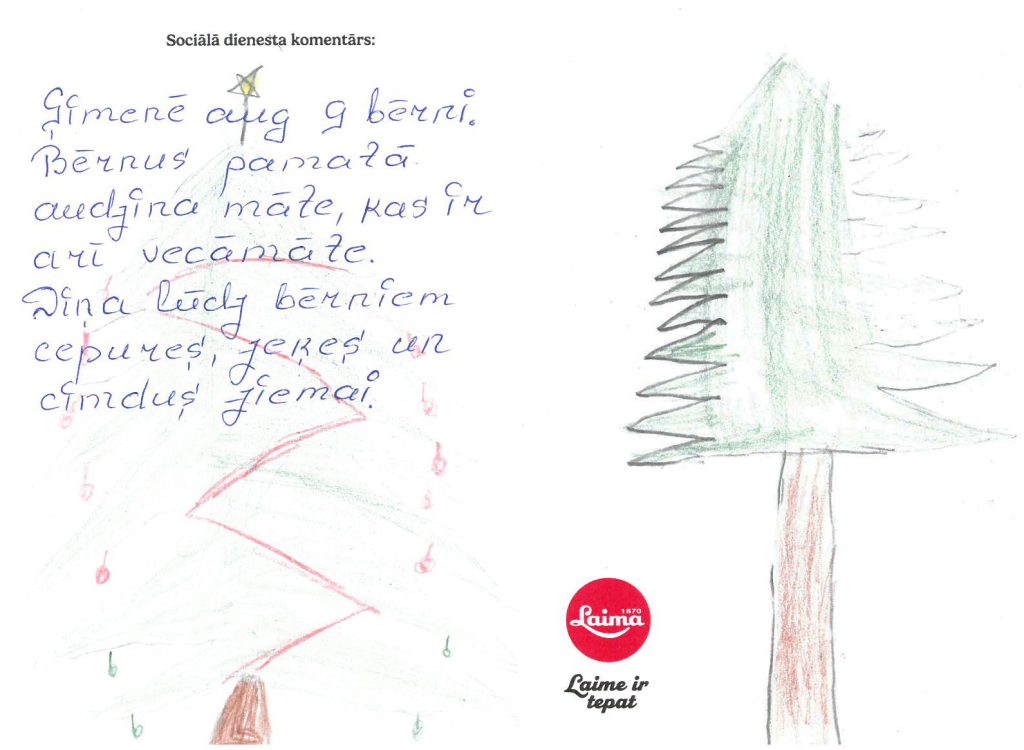 Sociālā dienesta komentārs:
Ģimenē aug 9 bērni.
Bērnus pamatā
audzina māte, kas ir
arī vecāmāte.
Viņa lūdz bērniem
cepures, zeķes un
cimdus ziemai.
1870
Laima
Laime ir
tepat